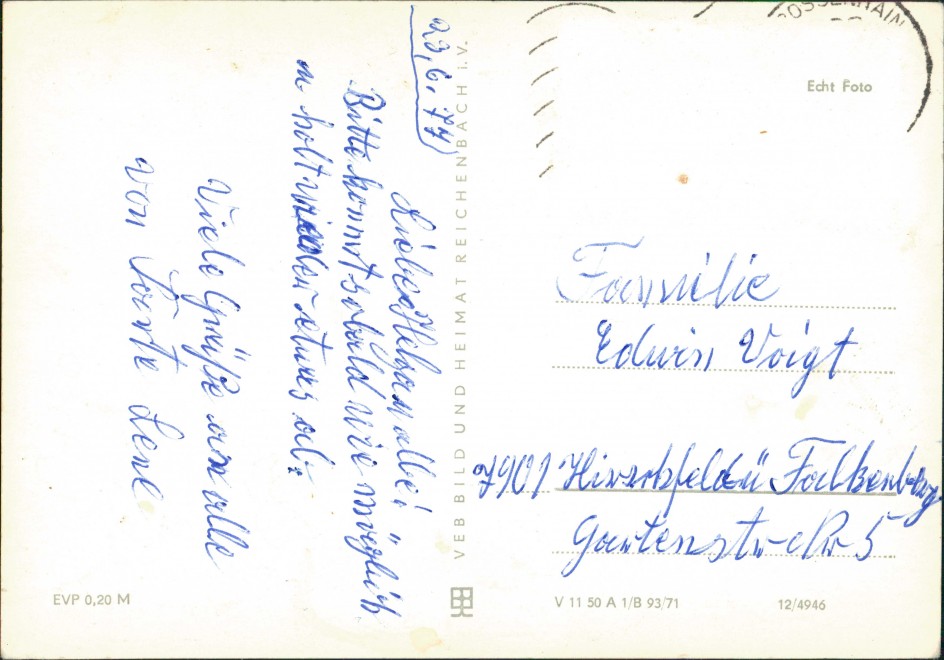 23.6.77
Liebe Helga u alle!
Bitte kommt sobald wie möglich
u holt wieder etwas ab.
Viele Grüße an alle
von Tante Lene
VEB BILD UND HEIMAT REICHENBACH I. V.
OSSENHAIN
Echt Foto
Familie
Edwin Voigt
7901 Hirschfeld ü Falkenberg
Gartenstr 5
EVP 0,20 M
V 11 50 A 1/B 93/71
12/4946